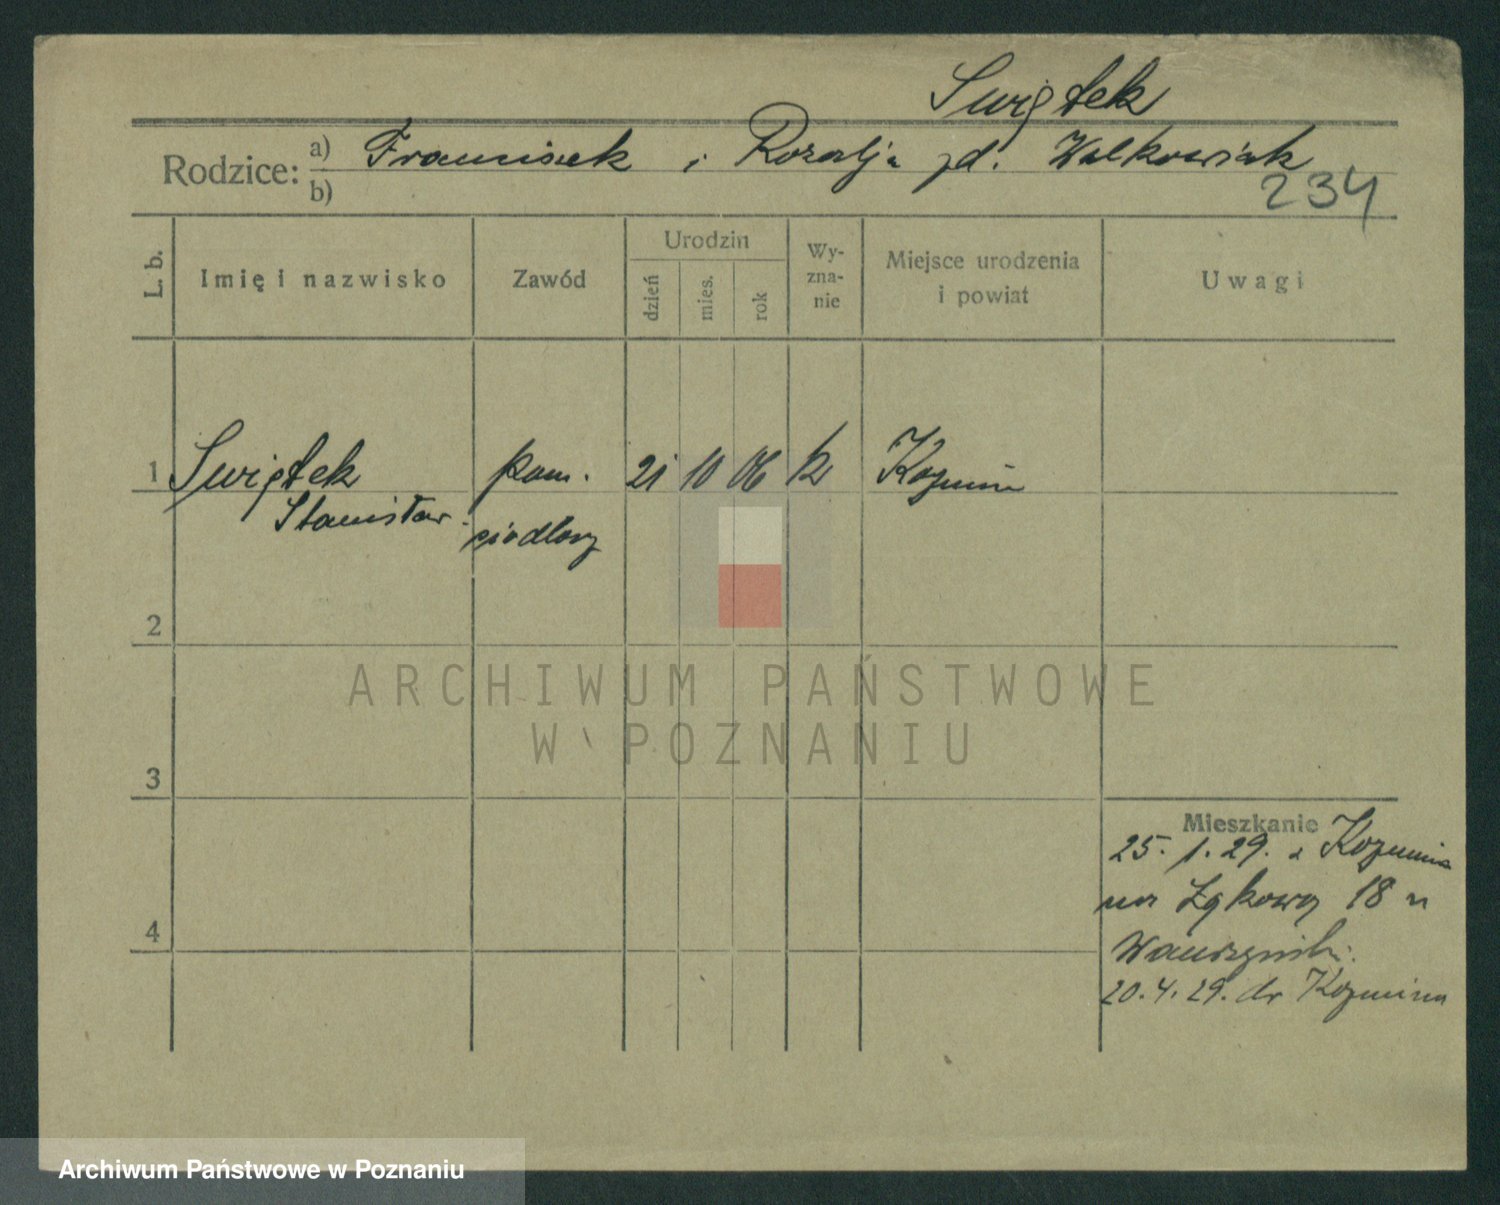 Swiątek
Rodzice: a) Franciszek i Rozalja zd. Walkowiak
b)
234
L. b.
Imię i nazwisko
Zawód
Urodzin
dzień
mies.
rok
Wy-
zna-
nie
Miejsce urodzenia
i powiat
Uwagi
1 Swiątek pom. 21 10 06 k Kozmin
Stanisław siodlarz
2
ARCHIWUM PAŃSTWOWE
W POZNANIU
3
Mieszkanie
25. 1. 29. z Kozmina
na Łąkową 18 u
4
20. 4. 29. do Kozmina
Archiwum Państwowe w Poznaniu